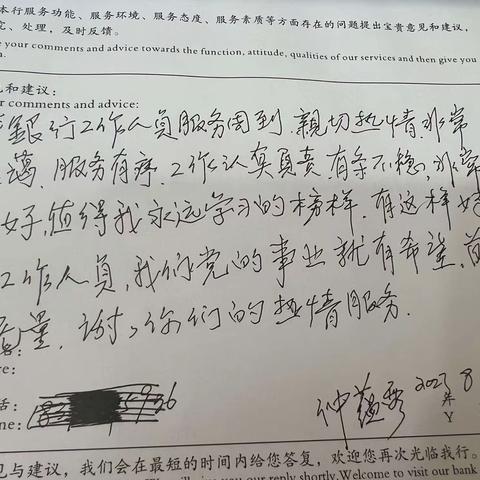 本行服务功能、服务环境、服务态度、服务素质等方面存在的问题提出宝贵意见和建议,
、处理,及时反馈。
e your comments and advice towards the function, attitude, qualities of our services and then give you
n.
见和建议:
r comments and advice:
銀行工作人员服务周到.亲切热情.非常
蔼.服务有序.工作认真負责.有条不穏,非常
好,值得我永远学习的榜样.有这样好
工作人员,我们党的事业就有希望,前
量.谢谢你们的热情服务.
re:
话:
ne:
仲蕴秀 2023年8
Y
见与建议,我们会在最短的时间内给您答复,欢迎您再次光临我行。
our reply shortly. Welcome to visit our bank